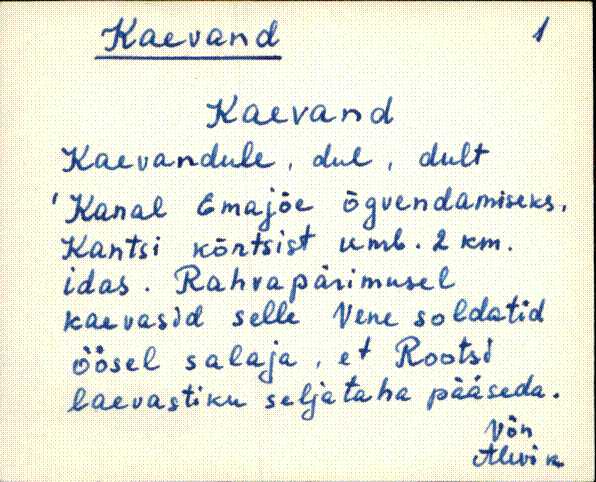 Kaevand 1
Kaevand
Kaevandule, dul, dult
'Kanal Emajõe õgvendamiseks.
Kantsi kõrtsist umb. 2 km.
idas. Rahvapärimusel
kaevasid selle Vene soldatid
öösel salaja, et Rootsi
laevastiku seljataha pääseda.
Võn